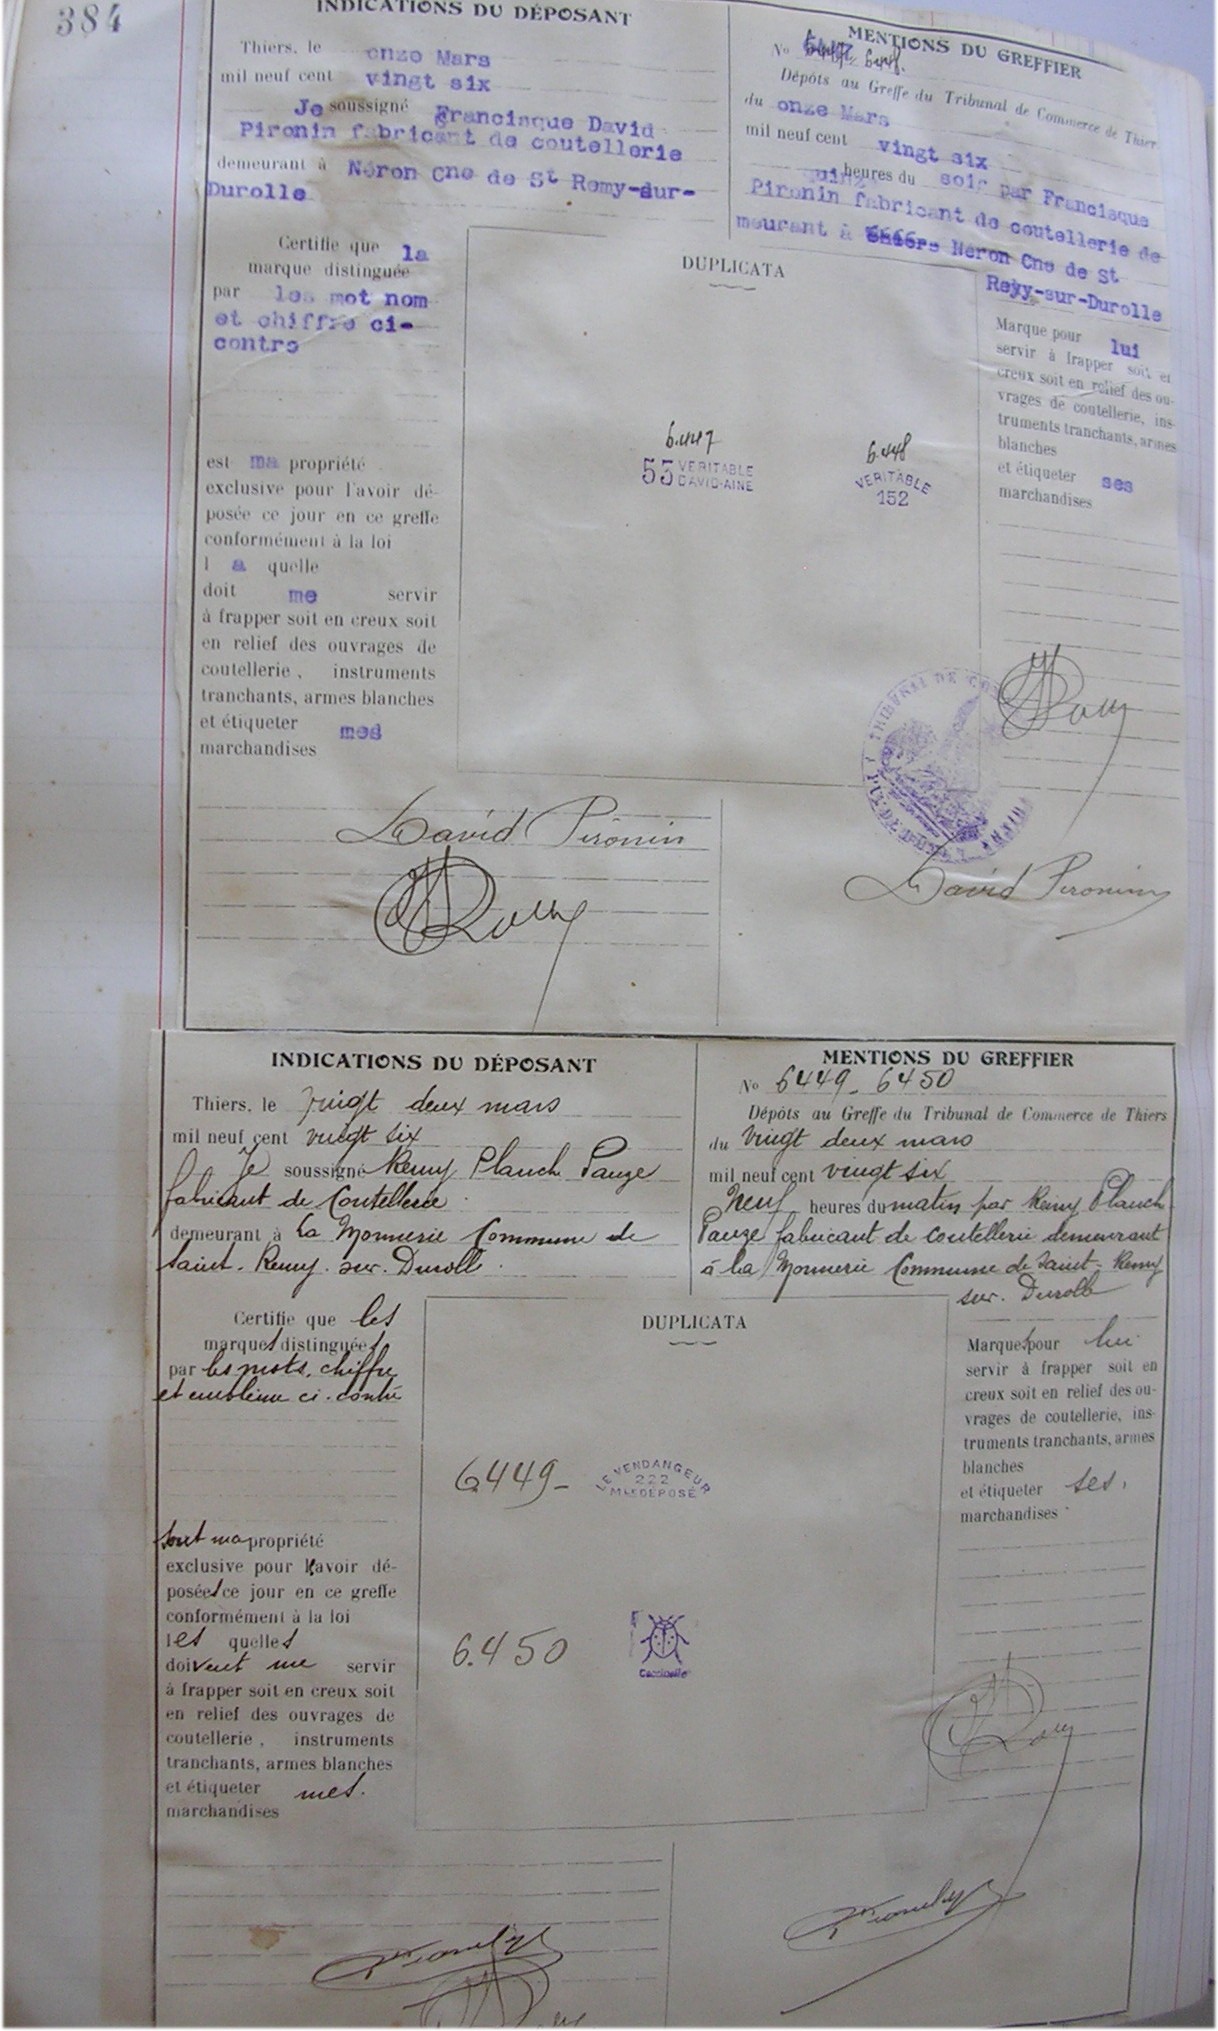 384
INDICATIONS DU DÉPOSANT
Thiers, le onze Mars
mil neuf cent vingt six
Je soussigné Francisque David
Pironin fabricant de coutellerie
demeurant à Néron Cne de St Remy-sur-
Durolle
MENTIONS DU GREFFIER
No 6447 6448.
Dépôts au Greffe du Tribunal de Commerce de Thier
du onze Mars
mil neuf cent vingt six
quinze heures du soir par Francisque
Pironin fabricant de coutellerie de
meurant à Néron Cne de St
Remy-sur-Durolle
Certifie que la
marque distinguée
par les mot nom
et chiffre ci-
contre
est ma propriété
exclusive pour l'avoir dé-
posée ce jour en ce greffe
conformément à la loi
l a quelle
doit me servir
à frapper soit en creux soit
en relief des ouvrages de
coutellerie, instruments
tranchants, armes blanches
et étiqueter mes
marchandises
DUPLICATA
6.447
55 VERITABLE
DAVID-AINE
6.448
VERITABLE
152
Marque pour lui
servir à frapper soit en
creux soit en relief des ou-
vrages de coutellerie, ins-
truments tranchants, armes
blanches
et étiqueter ses
marchandises
TRIBUNAL DE
David Pironin
David Pironin
INDICATIONS DU DÉPOSANT
Thiers, le vingt deux mars
mil neuf cent vingt six
Je soussigné Remy Planch Pauze
fabricant de Coutellerie
demeurant à La Monnerie Commune de
Saint-Remy-sur-Durolle.
MENTIONS DU GREFFIER
No 6449-6450
Dépôts au Greffe du Tribunal de Commerce de Thiers
du vingt deux mars
mil neuf cent vingt six
Neuf heures du matin par Remy Planch
Pauze fabricant de coutellerie demeurant
à La Monnerie Commune de Saint-Remy
sur-Durolle
Certifie que les
marques distinguées
par les mots, chiffre
et emblème ci-contre
sont ma propriété
exclusive pour l'avoir dé-
posées ce jour en ce greffe
conformément à la loi
les quelles
doivent me servir
à frapper soit en creux soit
en relief des ouvrages de
coutellerie, instruments
tranchants, armes blanches
et étiqueter mes.
marchandises
DUPLICATA
6449-
LE VENDANGEUR
222
MLE DÉPOSÉ
6.450
Coccinelle
Marques pour lui
servir à frapper soit en
creux soit en relief des ou-
vrages de coutellerie, ins-
truments tranchants, armes
blanches
et étiqueter ses.
marchandises